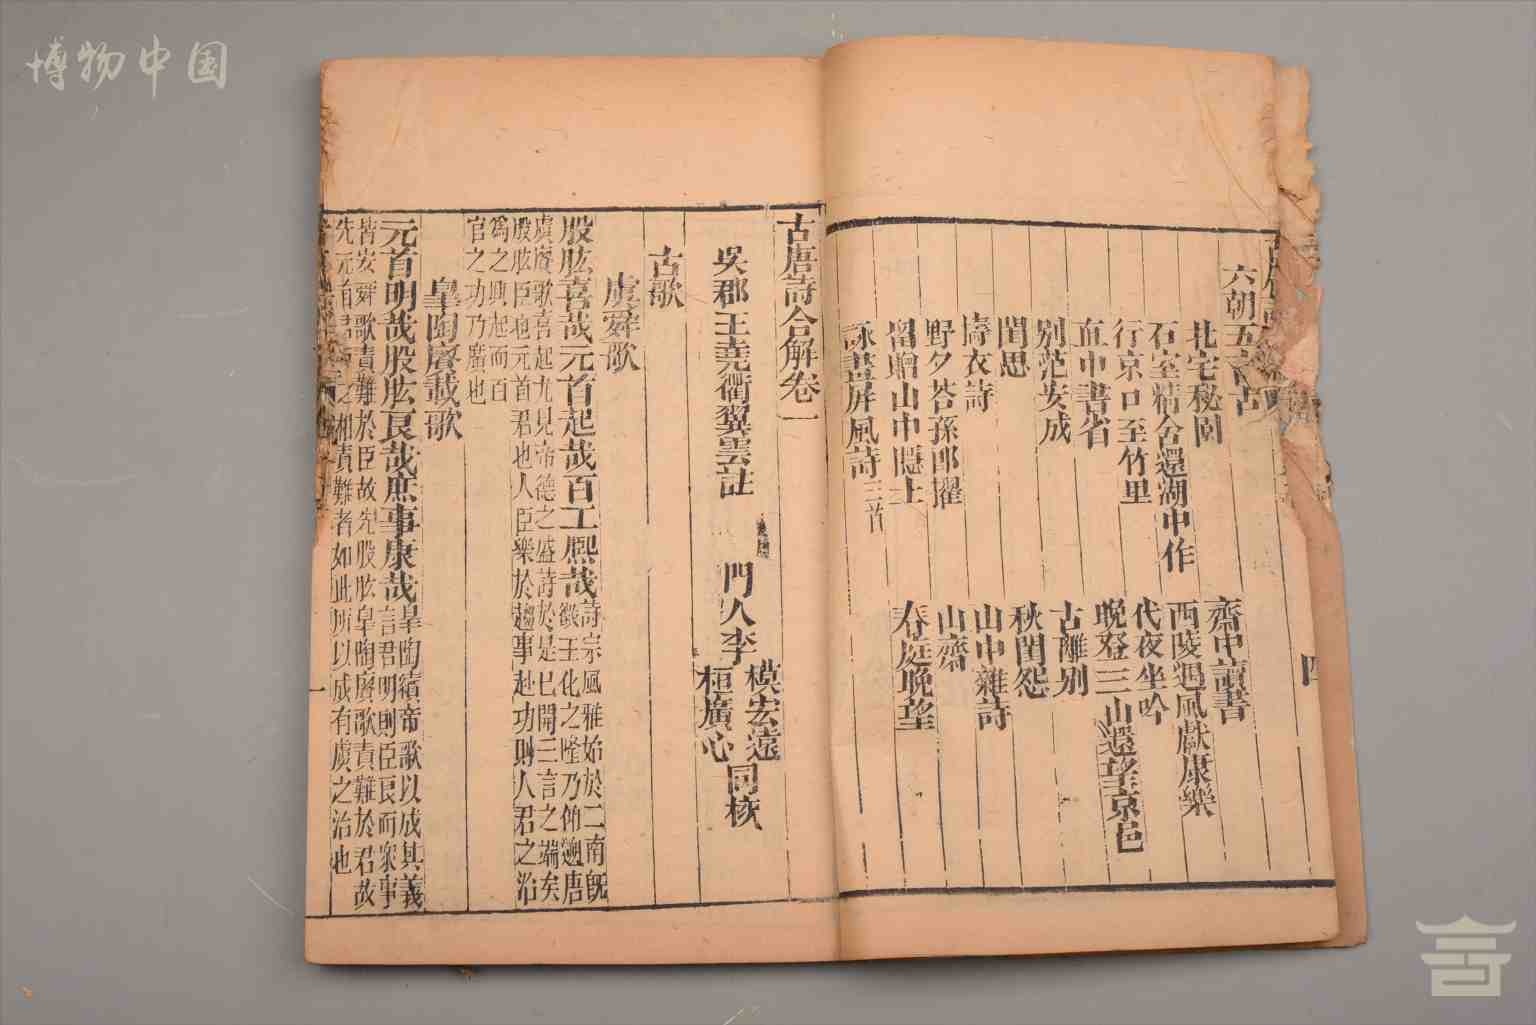 博物中国
六朝五言古
北宅秘園
齋中讀書
石室精舍還湖中作
西陵遇風獻康樂
行京口至竹里
代夜坐吟
直中書省
晚登三山還望京邑
別范安成
古離別
閨思
秋閨怨
擣衣詩
山中雜詩
野夕答孫郎擢
山齋
留贈山中隱士
春庭晚望
詠畫屏風詩二首
四
古唐詩合解卷一
吳郡王堯衢翼雲註
門人李
模宏遠
桓廣心
同校
古歌
虞舜歌
股肱喜哉元首起哉百工熙哉
詩宗風雅始於二南旣
徵王化之隆乃仰遡唐
虞賡歌喜起九見帝德之盛詩於是已開三言之端矣
股肱臣也元首君也人臣樂於趨事赴功則人君之治
爲之興起而百
官之功乃廣也
皐陶賡載歌
元首明哉股肱良哉庶事康哉
皐陶續帝歌以成其義
言君明則臣良而衆事
皆安舜歌責難於臣故先股肱皐陶賡歌責難於君故
先元首君臣之相責難者如此所以成有虞之治也
一